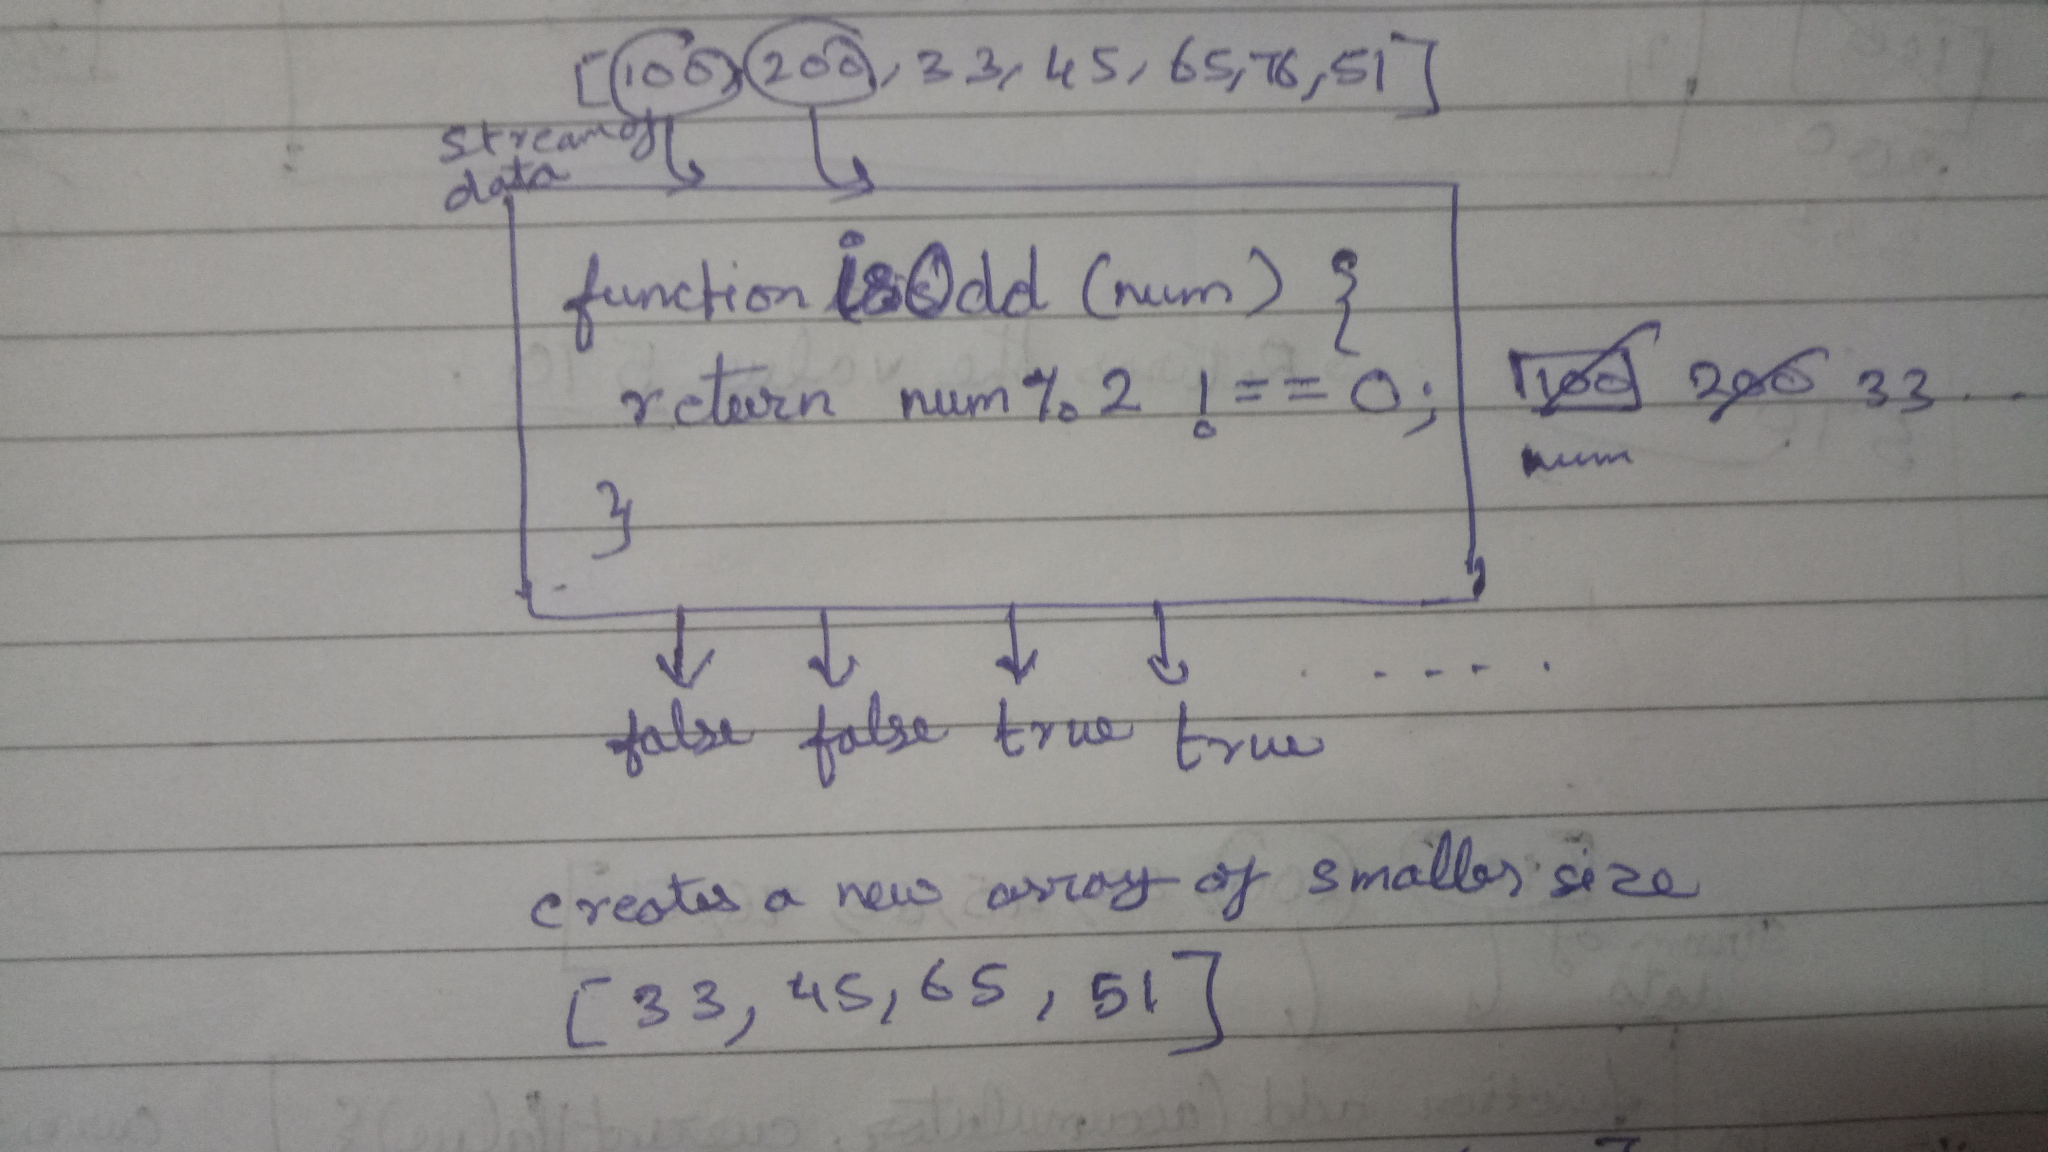 [100, 200, 33, 45, 65, 76, 51]
stream of
data
function isOdd (num) {
return num % 2 !== 0;
100 200 33 . . .
num
}
. - - - .
false false true true
creates a new array of smaller size
[33, 45, 65, 51]